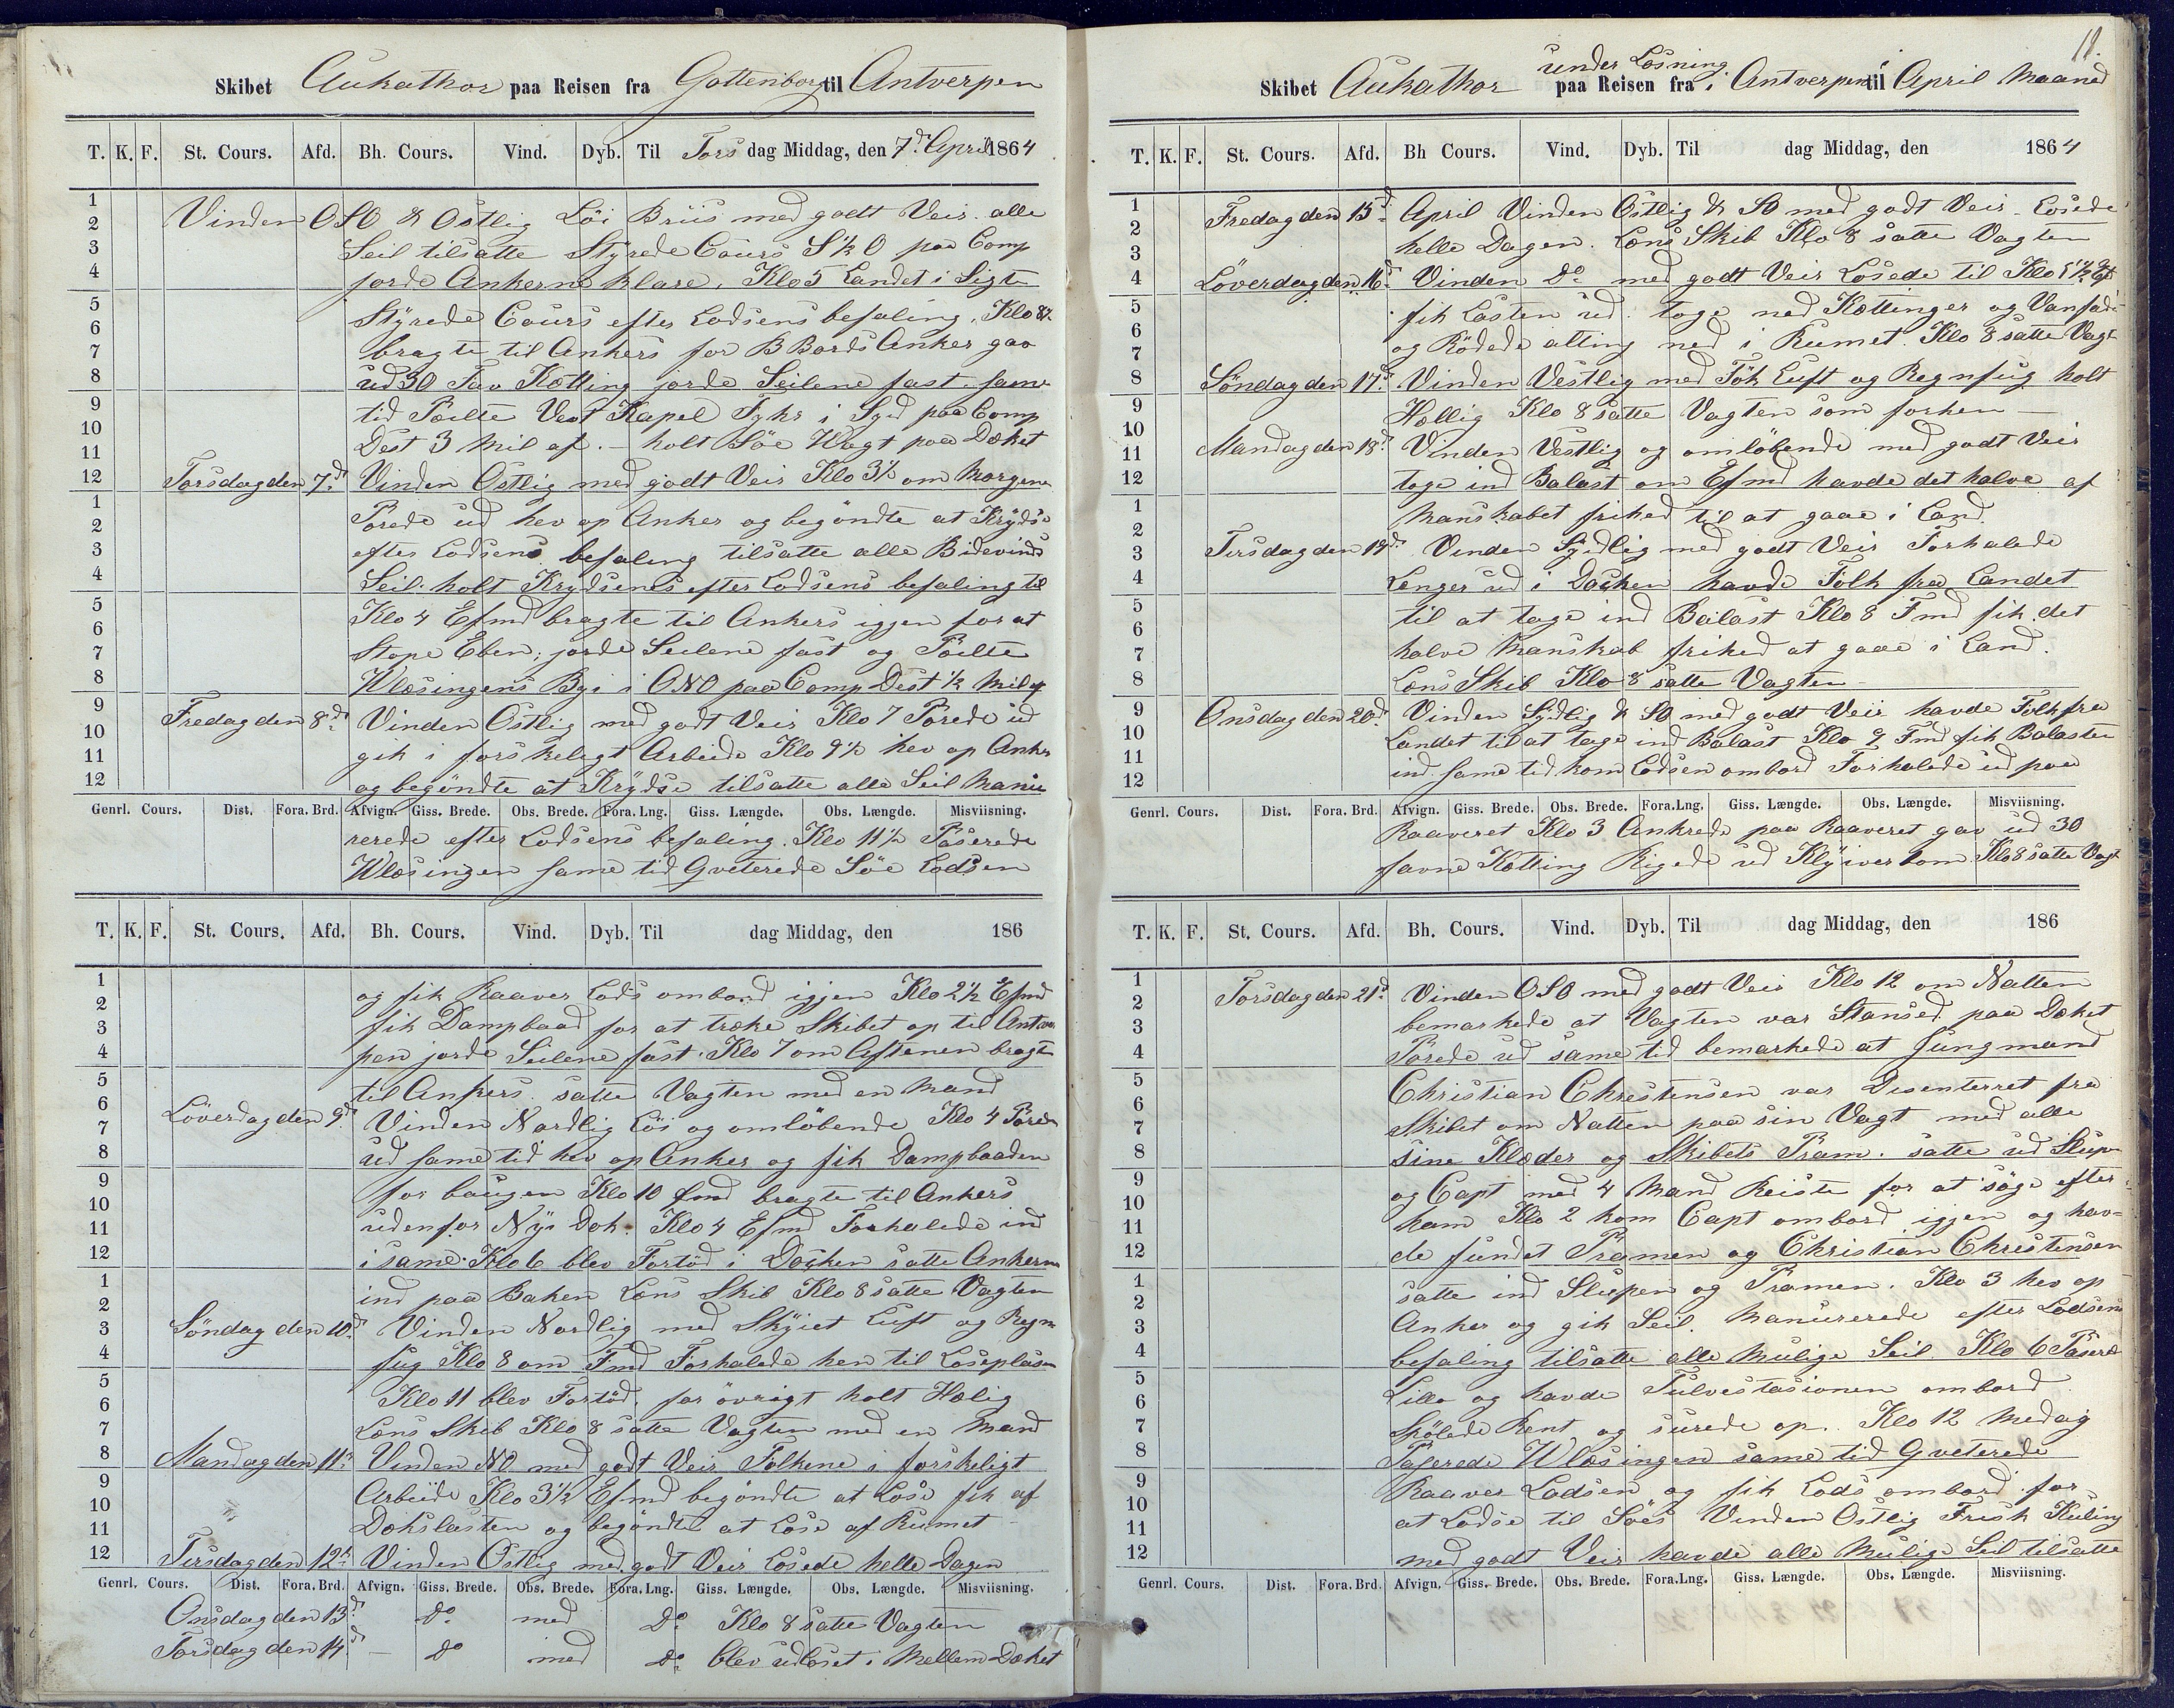 Skibet Aukathor paa Reisen fra Gottenborg til Antverpen
T. K. F. St. Cours. Afd. Bh. Cours. Vind. Dyb. Til Tors dag Middag, den 7d April 1864
1
2
3
4
5
6
7
8
9
10
11
12
1
2
3
4
5
6
7
8
9
10
11
12
Vinden OSO & Ostlig Löi Briis med godt Veir alle
Seil tilsatte Styrede Cours S½O paa Comp
jorde Ankerne klare. Klo 5 Landet i Sigte
Styrede Cours efter Lodsens befaling. Klo 8½
bragte til Ankers for B Bords Anker gav
ud 30 Fav Kötting jorde Seilene fast. same
tid Peilte Vest Kapel Fykr i Syd paa Comp
Dest 3 Mil af. – holt Söe Wagt paa Dæket
Torsdag den 7d Vinden Ostlig med godt Veir Klo 3½ om Morgene
Porede ud hev op Anker og begöndte at Krÿdse
efter Lodsens befaling tilsatte alle Bidevinds
Seil. holt Krydsenes efter Lodsens befaling til
Klo 4 Efmd bragte til Ankers iggen for at
Stope Eben. jorde Seilene fast og Peilte
Wlæsingens By i ONO paa Comp Dest ½ Mil af
Fredag den 8d Vinden Ostlig med godt Veir Klo 7 Porede ud
gik i forskeligt Arbeide Klo 9½ hev op Anker
og begöndte at Krÿdse tilsatte alle Seil Manu
Genrl. Cours. Dist. Fora. Brd. Afvign. Giss. Brede. Obs. Brede. Fora. Lng. Giss. Længde. Obs. Længde. Misviisning.
rerede efter Lodsens befaling. Klo 11½ Paserede
Wlæsingen same tid Qveterede Söe Lodsen
T. K. F. St. Cours. Afd. Bh. Cours. Vind. Dyb. Til dag Middag, den 186
1
2
3
4
5
6
7
8
9
10
11
12
1
2
3
4
5
6
7
8
9
10
11
12
og fik Raaver Lods ombord iggen Klo 2½ Efmd
fik Dampbaad for at træke Skibet op til Antver
pen jorde Seilene fast. Klo 7 om Aftenen bragte
til Ankers. satte Vagten med en Mand
Löverdag den 9d Vinden Nordlig Löi og omlöbende Klo 4 Porede
ud same tid hev op Anker og fik Dampbaaden
for baugen Klo 10 fmd bragte til Ankers
udenfor Nÿe Dok. Klo 4 Efmd Forhalede ind
i same. Klo 6 blev Fortöd i Docken satte Ankerne
ind paa Baken Læns Skib Klo 8 satte Vagten
Söndag den 10d Vinden Nordlig med Skÿiet Luft og Regn
fug Klo 8 om Fmd Forhalede hen til Losseplasen
Klo 11 blev Fortöd. for övrigt holt Hælig
Læns Skib Klo 8 satte Vagten med en Mand
Mandag den 11d Vinden NO med godt Veir Folkene i forskeligt
Arbeide Klo 3½ Efmd begöndte at Löse fik af
Dækslasten og begöndte at Löse af Rumet
Tirsdag den 12d Vinden Ostlig med godt Veir Lösede helle Dagen
Genrl. Cours. Dist. Fora. Brd. Afvign. Giss. Brede. Obs. Brede. Fora. Lng. Giss. Længde. Obs. Længde. Misviisning.
Onsdag den 13d do med Do Klo 8 satte Vagten
Torsdag den 14d – do med do blev udloset i Mellem Dæket
11.
Skibet Aukathor under Losning paa Reisen fra i Antverpen til April Maaned
T. K. F. St. Cours. Afd. Bh Cours. Vind. Dyb. Til dag Middag, den 1864
1
2
3
4
5
6
7
8
9
10
11
12
1
2
3
4
5
6
7
8
9
10
11
12
Fredag den 15d April Vinden Ostlig & SO med godt Veir. Losede
helle Dagen. Læns Skib Klo 8 satte Vagten
Löverdag den 16d Vinden Do med godt Veir Losede til Klo 5½ Ef
fik Lasten ud. toge ned Kættinger og Vanfade
og Rödede alting ned i Rumet. Klo 8 satte Vagt
Söndag den 17d Vinden Vestlig med Tök Luft og Regnfug holt
Hellig Klo 8 satte Vagten som forhen
Mandag den 18d Vinden Vestlig og omlöbende med godt Veir
toge ind Balast om Efmd havde det halve af
Manskabet frihed til at gaae i Land.
Tirsdag den 19d Vinden Sydlig med godt Veir Forhalede
Lenger ud i Docken havde Folk fra Landet
til at tage ind Balast Klo 8 Fmd fik det
halve Manskab frihed at gaae i Land.
Læns Skib Klo 8 satte Vagten
Onsdag den 20d Vinden Sydlig & SO med godt Veir havde Folk fra
Landet til at tage ind Balast Klo 9 Fmd fik Balasten
ind. same tid kom Lodsen ombord Forhalede ud paa
Genrl. Cours. Dist. Fora. Brd. Afvign. Giss. Brede. Obs. Brede. Fora.Lng. Giss. Længde. Obs. Længde. Misviisning.
Raaveret Klo 3 Ankrede paa Raaveret gav ud 30
favne Kætting Rigede ud Klÿverbom Klo 8 satte Vagt
T. K. F. St. Cours. Afd. Bh. Cours. Vind. Dyb. Til dag Middag, den 186
1
2
3
4
5
6
7
8
9
10
11
12
1
2
3
4
5
6
7
8
9
10
11
12
Torsdag den 21d Vinden OSO med godt Veir Klo 12 om Natten
bemarkede at Vagten var Stansed paa Dæket
Porede ud same tid bemarkede at Jungmand
Christian Christensen var Desenterret fra
Skibet om Natten paa sin Vagt med alle
sine Klæder og Skibets Pram. satte ud Slupen
og Capt med 4 Mand Reiste for at söge efter
ham Klo 2 kom Capt ombord iggen og hav=
de fundet Pramen og Christian Christensen
satte ind Slupen og Pramen. Klo 3 hev op
Anker og gik Seil. Manurerede efter Lodsens
befaling tilsatte alle Mulige Seil. Klo 6 Paserede
Lillo og havde Tulvestasionen ombord
Spölede Rent og surede op. Klo 12 Medag
Paserede Wlæsingen same tid Qveterede
Raaver Lodsen og fik Lods ombord for
at Lodse til Söes Vinden Ostlig Frisk Kuling
med godt Veir havde alle Mulige Seil tilsatte
Genrl. Cours. Dist. Fora. Brd. Afvign. Giss. Brede. Obs. Brede. Fora.Lng. Giss. Længde. Obs. Længde. Misviisning.